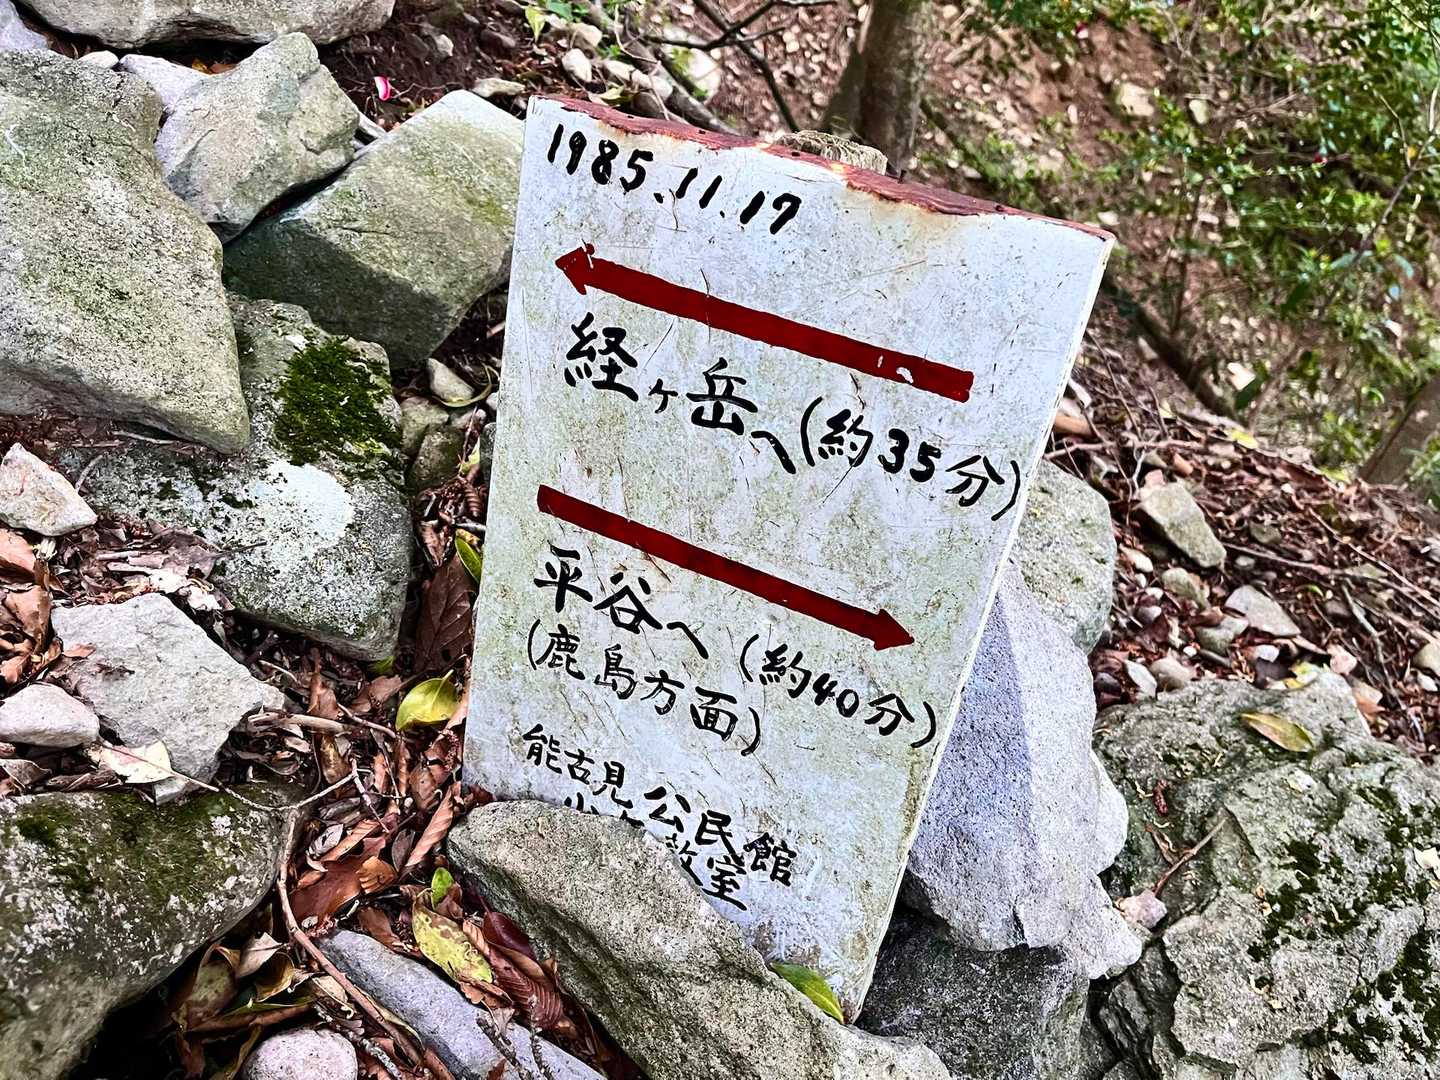 1985.11.17
経ヶ岳へ(約35分)
平谷へ(約40分)
(鹿島方面)
能古見公民館
教室